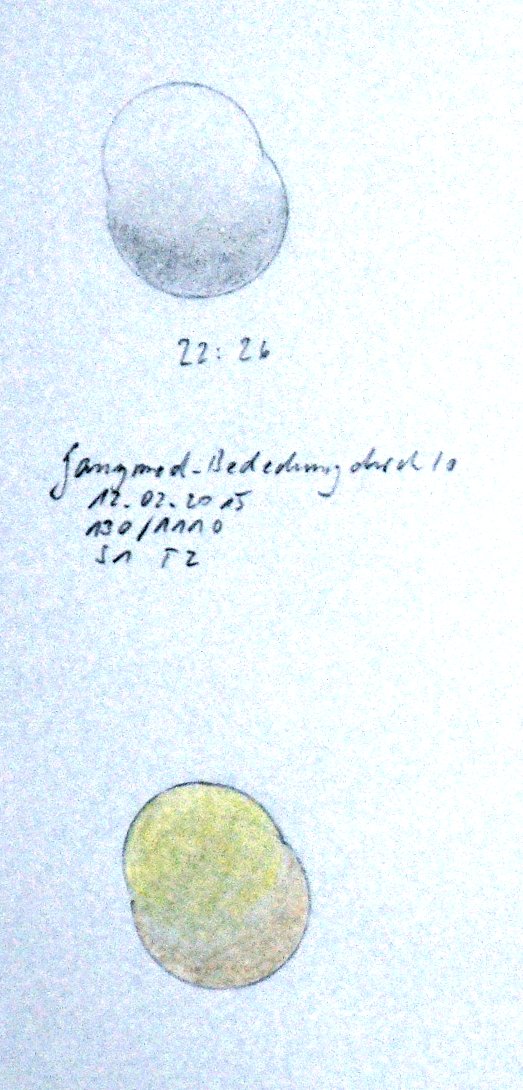 22:26
Ganymed-Bedeckung durch Io
12.02.2015
130/1110
S1 T2